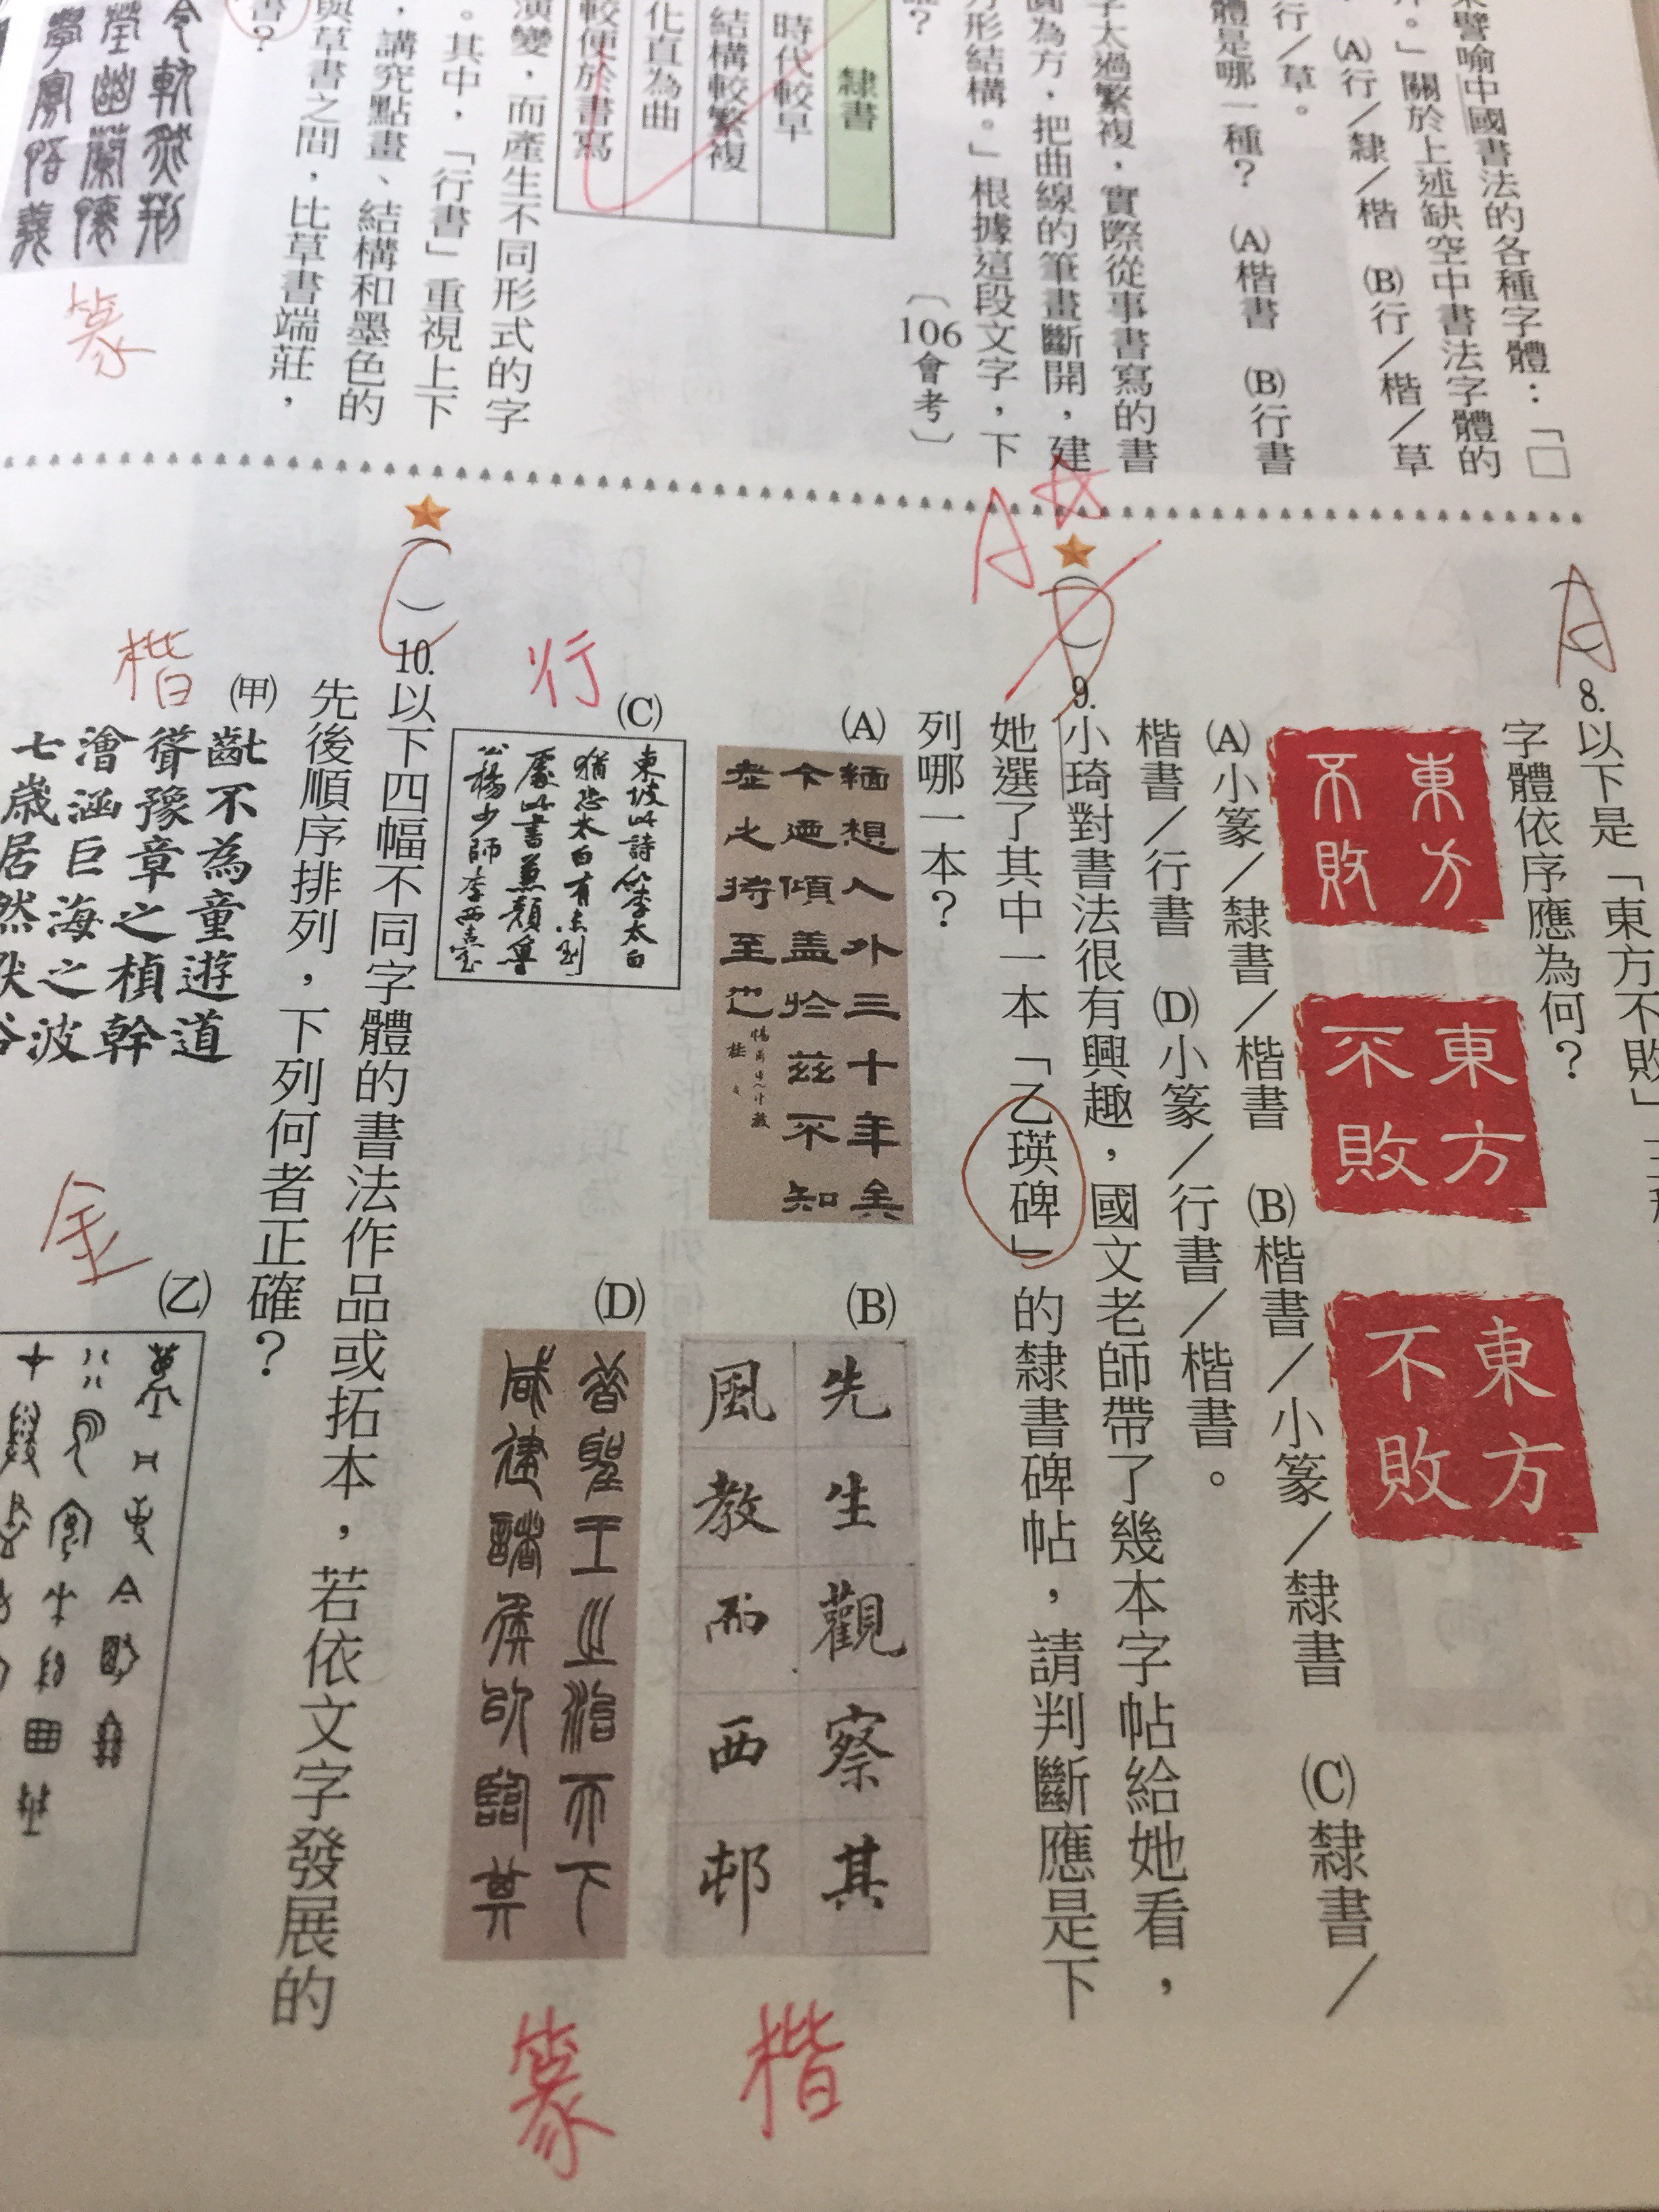 東譬喻中國書法的各種字體：「□
。」關於上述缺空中書法字體的
(A)行／隸／楷　(B)行／楷／草
行／草。
體是哪一種？　(A)楷書　(B)行書
字太過繁複，實際從事書寫的書
圓為方，把曲線的筆畫斷開，建
方形結構。」根據這段文字，下
〔106會考〕
隸書
時代較早
結構較繁複
化直為曲
較便於書寫
演變，而產生不同形式的字
。其中，「行書」重視上下
，講究點畫、結構和墨色的
與草書之間，比草書端莊，
書？
篆
A
8.以下是「東方不敗」
字體依序應為何？
東方
不敗
東方
不敗
東方
不敗
(A)小篆／隸書／楷書　(B)楷書／小篆／隸書　(C)隸書／
楷書／行書　(D)小篆／行書／楷書。
A
D
9.小琦對書法很有興趣，國文老師帶了幾本字帖給她看，
她選了其中一本「乙瑛碑」的隸書碑帖，請判斷應是下
列哪一本？
(A)
緬想人外三十年矣
今迺傾蓋於茲不知
老之將至也
(B)
先生觀察其
風教而西邨
楷
(C)
東坡此詩似李太白
猶恐太白有未到
處此書兼顏魯
公楊少師李西臺
行
(D)
昔聖王之治天下
咸建諸侯以臨其
篆
C
10.以下四幅不同字體的書法作品或拓本，若依文字發展的
先後順序排列，下列何者正確？
(甲)
齔不為童遊道
聳豫章之楨幹
澮涵巨海之波
七歲居然
楷
(乙)
金